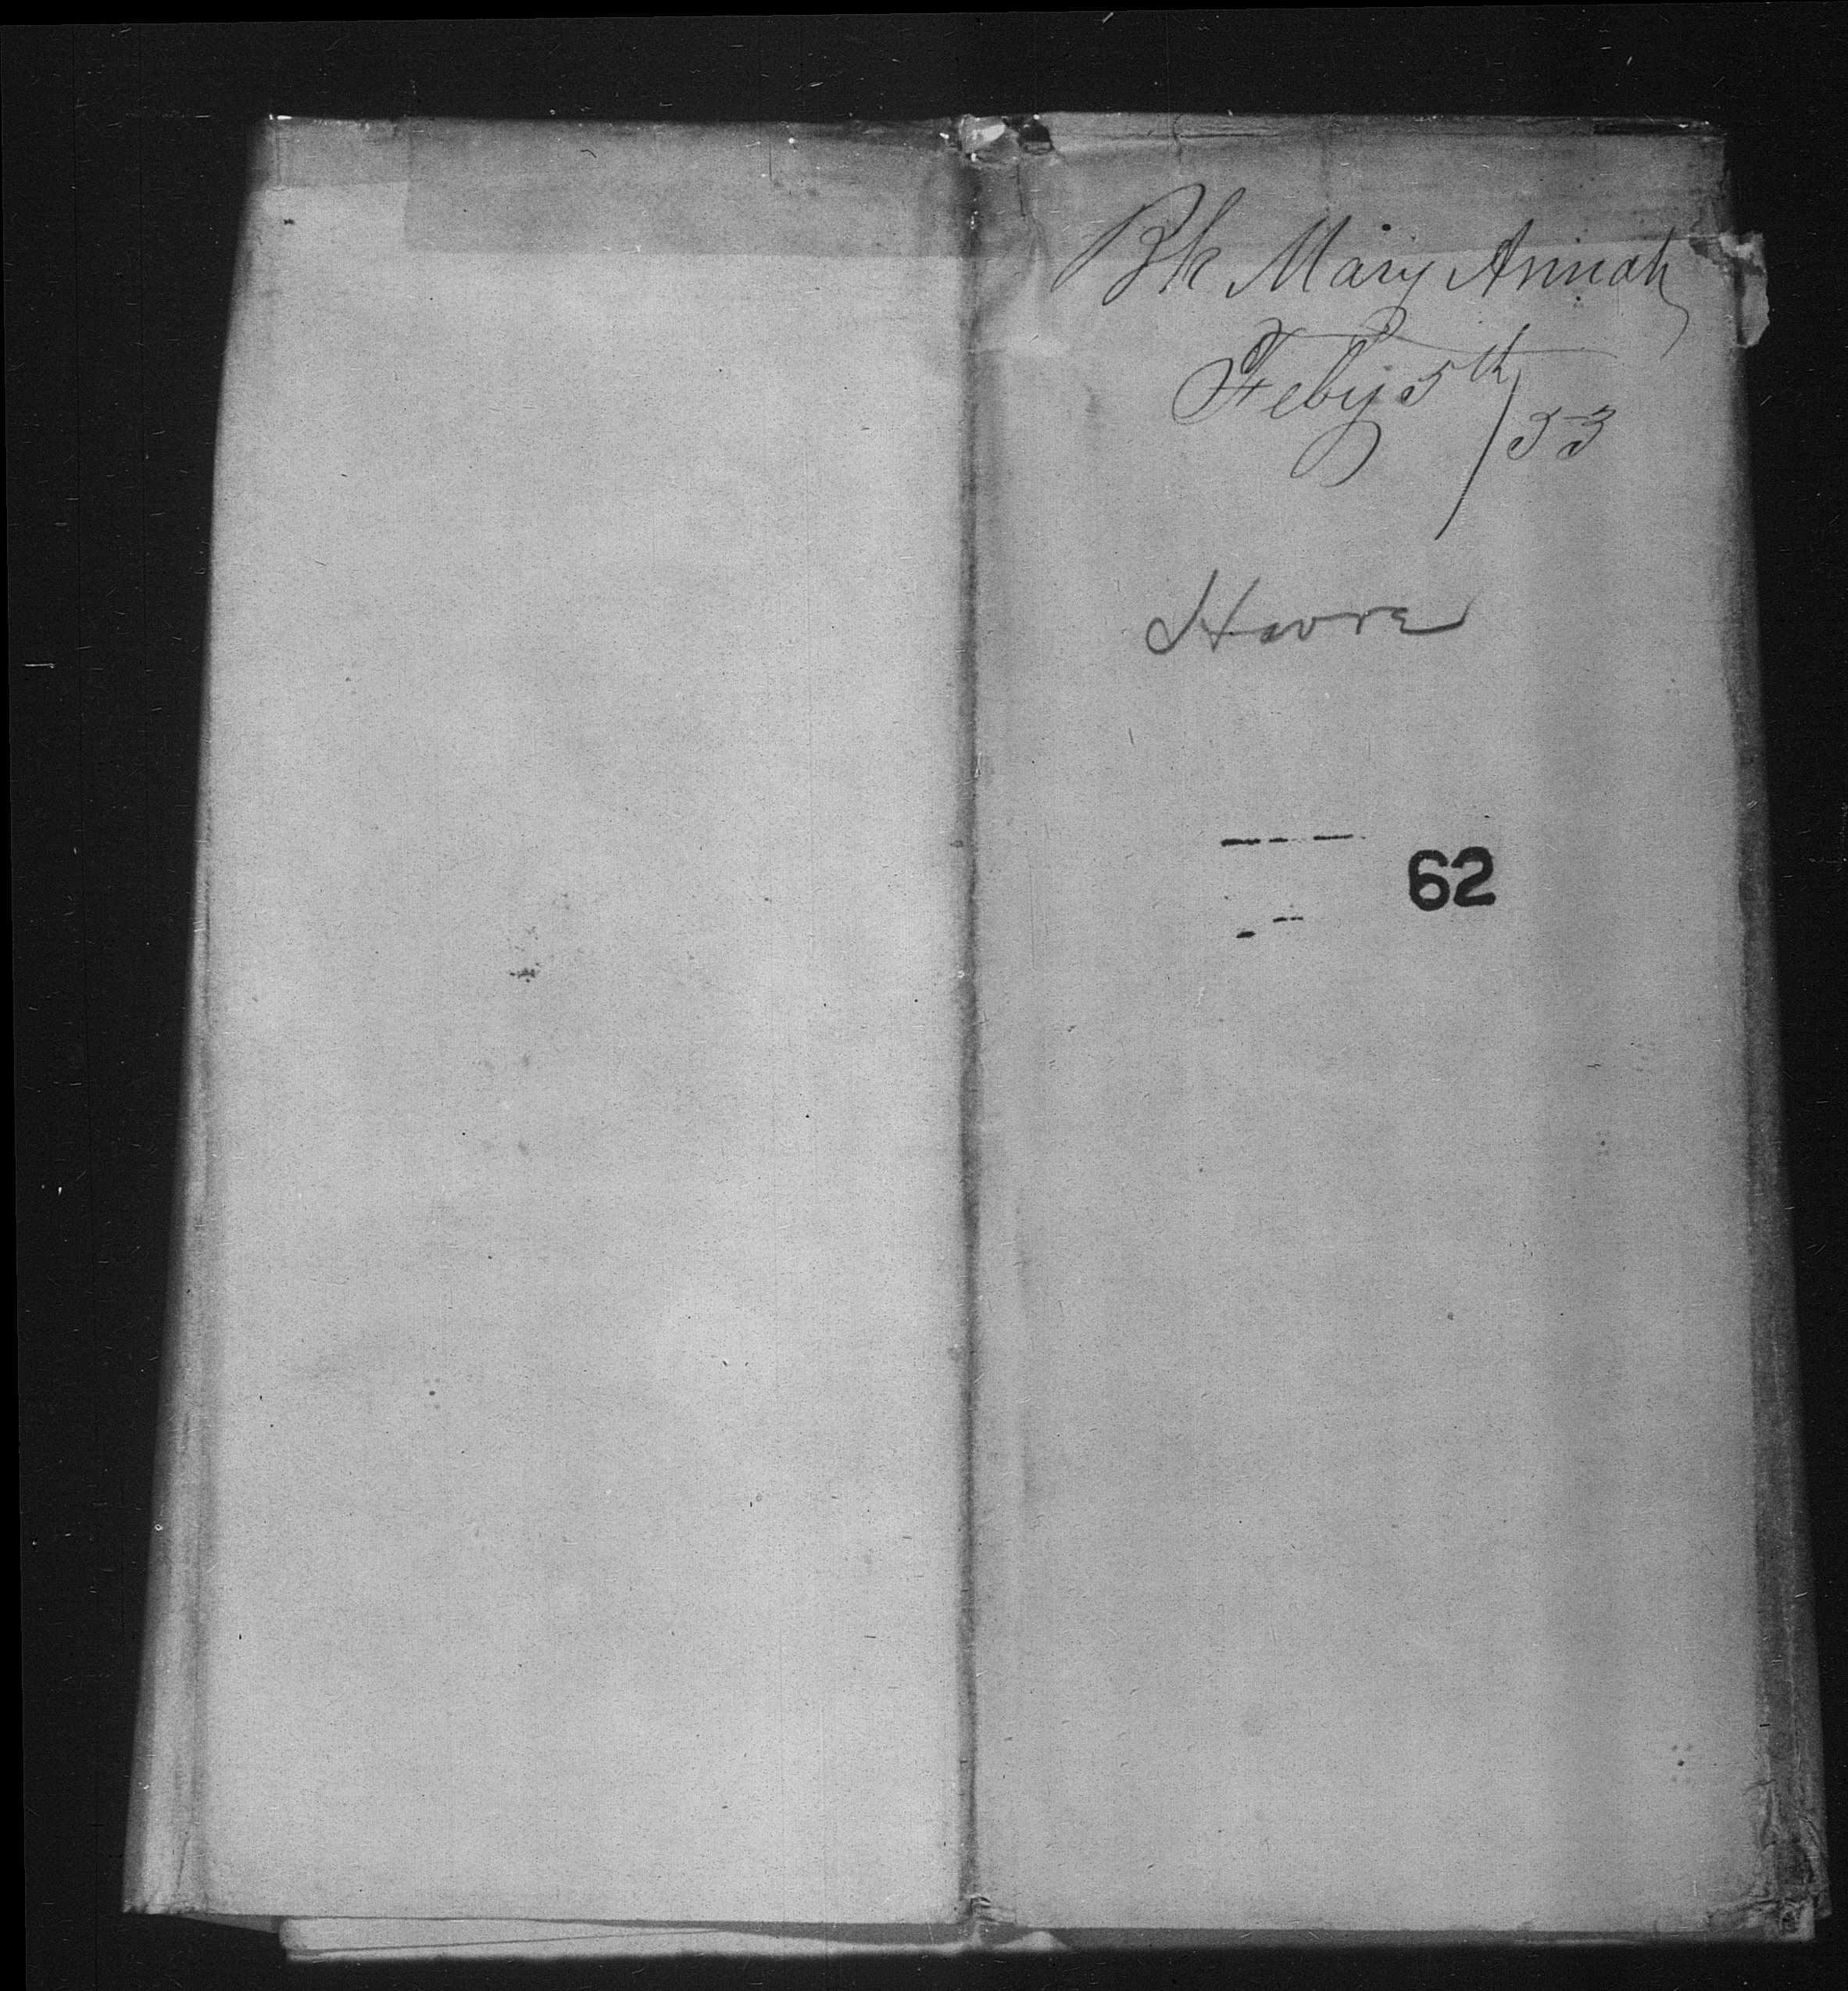 Bk Mary Annah
Feby 5th/53
Havre
62